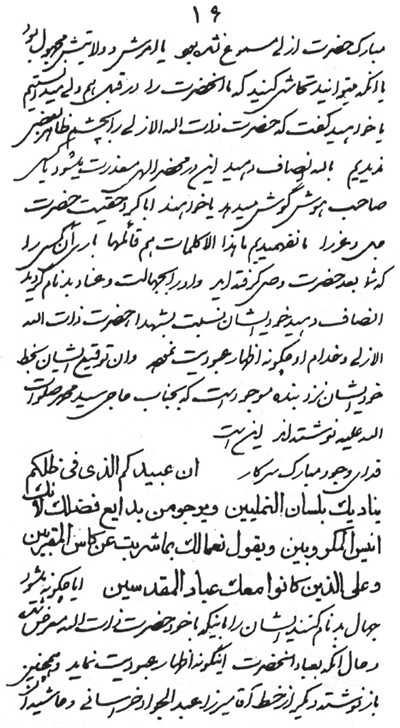 ۱۹
مبارک حضرت ازلی مسموع نشده بود یا امرش و ولایتش مجهول بود
یا آنکه میتوانید تحاشی کنید که ما آنحضرت را در قبل هم ولی میدانستیم
یا خواهید گفت که حضرت ذات الله الازلی را بچشم ظاهر بعضی
ندیدیم بالله انصاف دهید این در محضر الهی معذرت میشود یا
صاحب هوش گوش میدهد یا خواهند ابا کرد حقیت حضرت
را نفهمیدیم ما هذا الا کلمات هم قائلها باری آن کس را
که شما بعد حضرت وحی گرفته اید و او را بجهالت و عناد بدنام کردید
انصاف دهید خود ایشان نسبت بشهدا حضرت ذات الله
الازلی و خدام او چگونه اظهار عبودیت نموده و ان توقیع ایشان بخط
خود ایشان نزد بنده موجود است که بجناب حاجی سید محمد صلوات
الله علیه نوشته اند این است
فدای وجود مبارک سرکار ان عبیدکم الذی فی ظلکم
ینادیک بلسان التملیین و یرجو من بدایع فضلک لانک
انیس المکروبین و یقول نعما لک بما شربت عن کاس المقربین
و علی الذین کانوا معک عباد المقدسین ایا چگونه میشود
جهال بدنام کنند ایشان را باینکه با خود حضرت ذات الله معرض شدند
و حال آنکه بعباد آنحضرت اینگونه اظهار عبودیت نماید و همچنین
باز نوشته دیگر از خط آقا میرزا عبد الجواد خراسانی و حاشیه آن